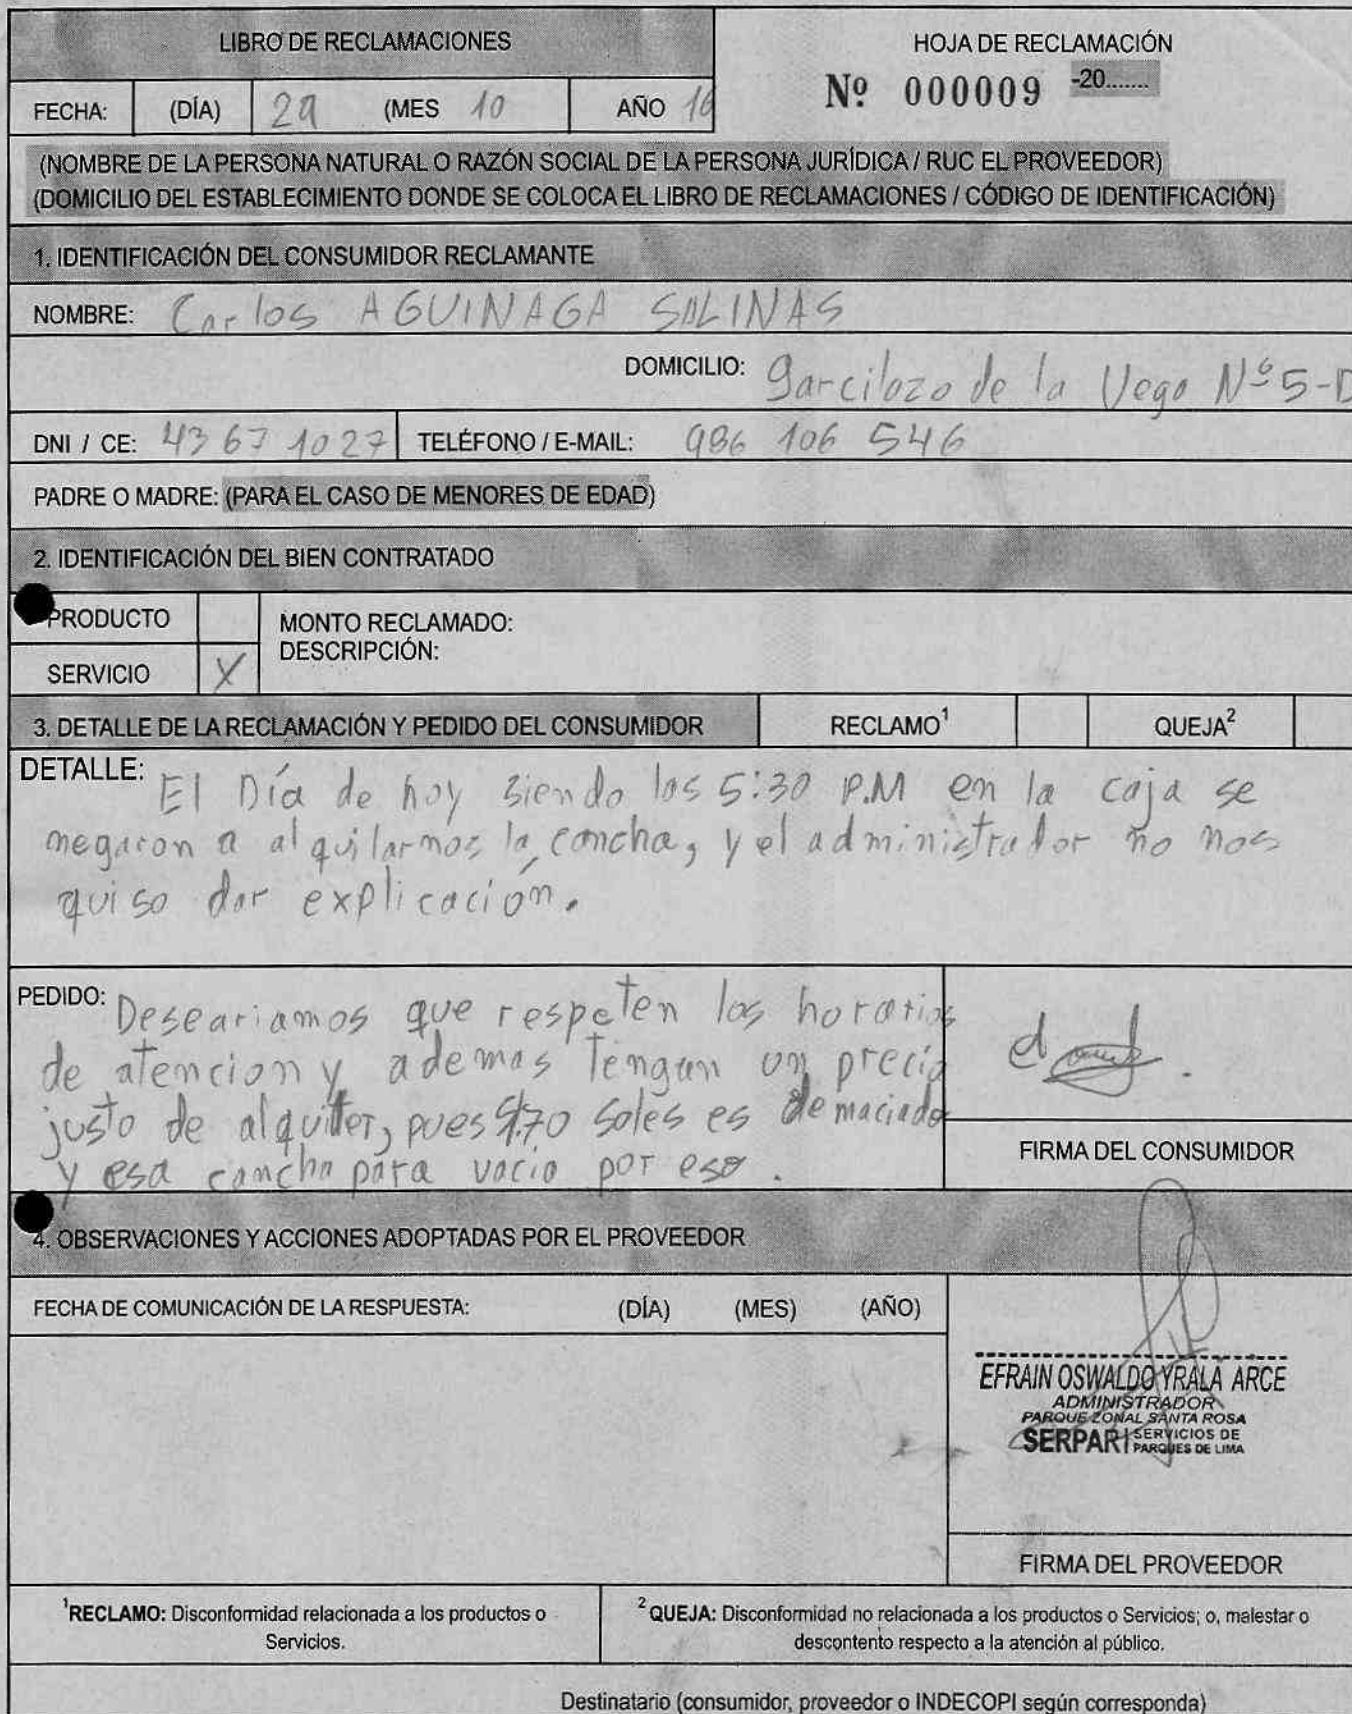 LIBRO DE RECLAMACIONES
HOJA DE RECLAMACIÓN
Nº 000009 -20.......
FECHA: (DÍA) 29 (MES 10 AÑO 16
(NOMBRE DE LA PERSONA NATURAL O RAZÓN SOCIAL DE LA PERSONA JURÍDICA / RUC EL PROVEEDOR)
(DOMICILIO DEL ESTABLECIMIENTO DONDE SE COLOCA EL LIBRO DE RECLAMACIONES / CÓDIGO DE IDENTIFICACIÓN)
1. IDENTIFICACIÓN DEL CONSUMIDOR RECLAMANTE
NOMBRE: Carlos AGUINAGA SALINAS
DOMICILIO: Garcilozo de la Vega Nº 5-D
DNI / CE: 43 67 1027 TELÉFONO / E-MAIL: 986 106 546
PADRE O MADRE: (PARA EL CASO DE MENORES DE EDAD)
2. IDENTIFICACIÓN DEL BIEN CONTRATADO
PRODUCTO
MONTO RECLAMADO:
DESCRIPCIÓN:
SERVICIO X
3. DETALLE DE LA RECLAMACIÓN Y PEDIDO DEL CONSUMIDOR RECLAMO¹ QUEJA²
DETALLE: El Día de hoy siendo las 5:30 P.M en la caja se
negaron a alquilarnos la cancha, y el administrador no nos
quiso dar explicación.
PEDIDO: Deseariamos que respeten los horarios
de atencion y ademas tengan un precio
justo de alquiler, pues S/.70 soles es demaciado
y esa cancha para vacia por eso.
FIRMA DEL CONSUMIDOR
4. OBSERVACIONES Y ACCIONES ADOPTADAS POR EL PROVEEDOR
FECHA DE COMUNICACIÓN DE LA RESPUESTA: (DÍA) (MES) (AÑO)
EFRAIN OSWALDO YRALA ARCE
ADMINISTRADOR
PARQUE ZONAL SANTA ROSA
SERPAR SERVICIOS DE
PARQUES DE LIMA
FIRMA DEL PROVEEDOR
¹RECLAMO: Disconformidad relacionada a los productos o
Servicios.
² QUEJA: Disconformidad no relacionada a los productos o Servicios; o, malestar o
descontento respecto a la atención al público.
Destinatario (consumidor, proveedor o INDECOPI según corresponda)